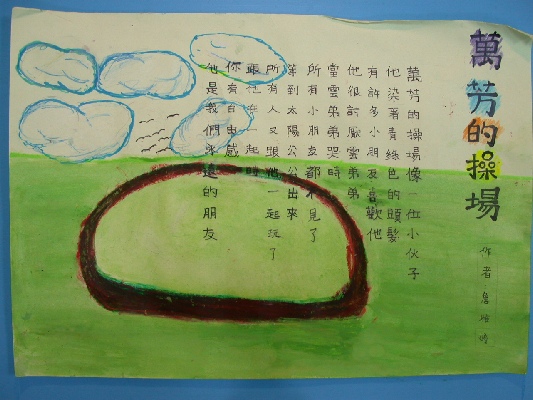 萬芳的操場
作者 詹
萬芳的操場像一位小伙子
他染著青綠色的頭髮
有許多小朋友喜歡他
他很討厭雲弟弟
當雲弟弟哭時
所有小朋友都不見了
等到太陽公公出來
所有人又跟他一起玩了
跟他在一起時
你有自由感
他是我們永遠的朋友